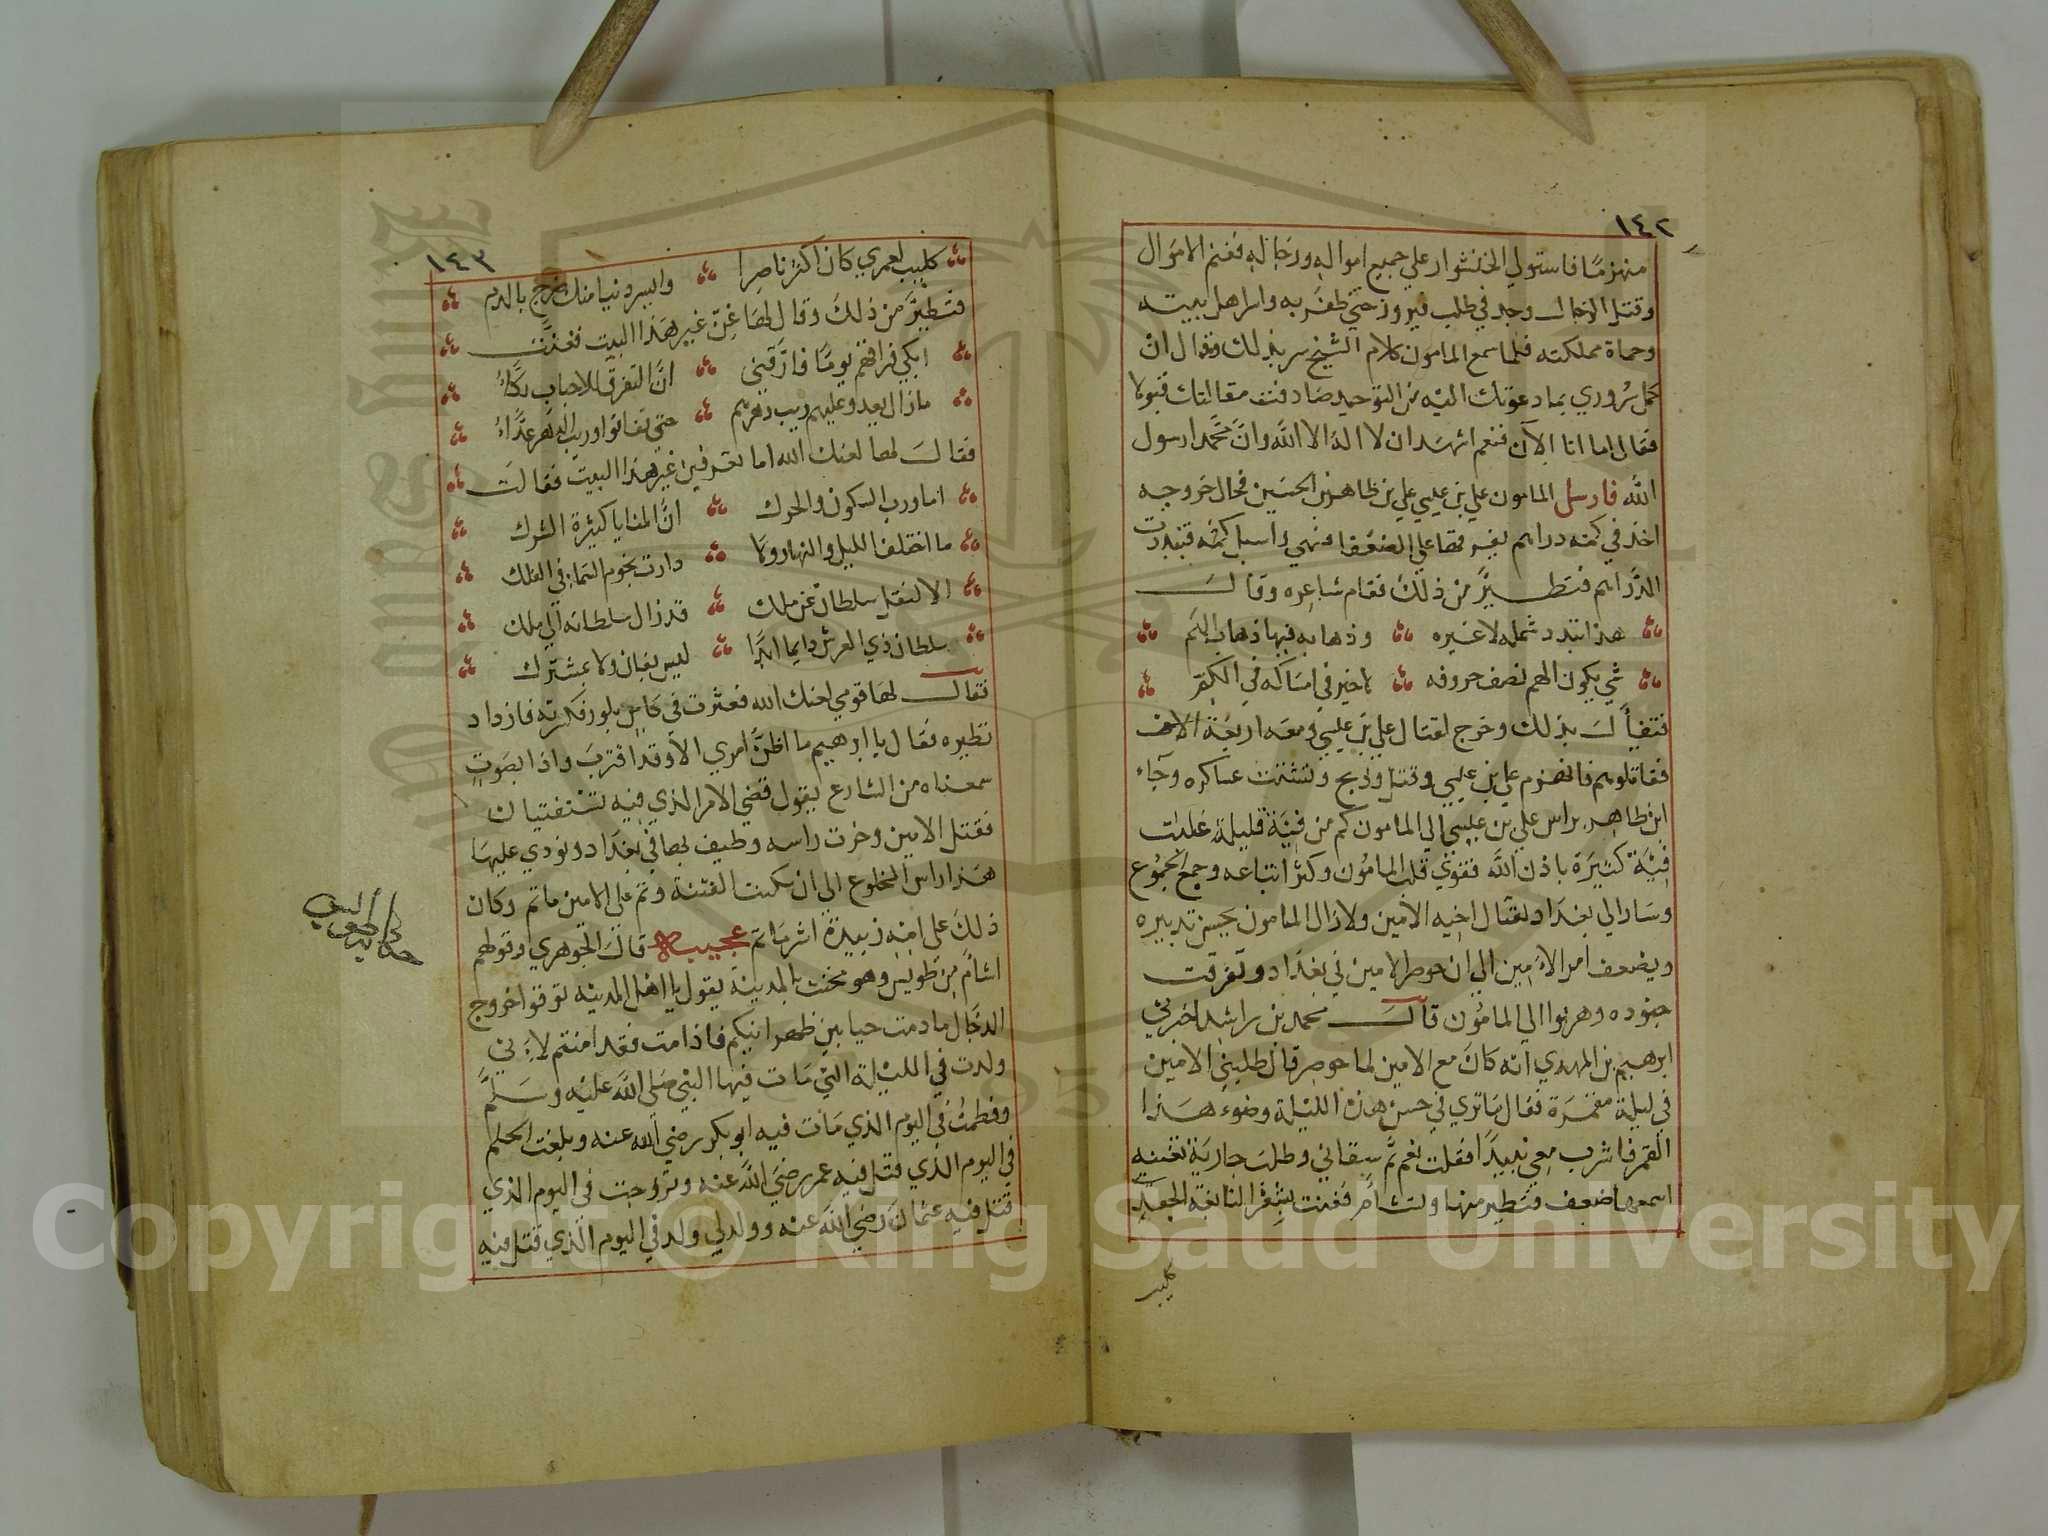 ١٤٢
منهزمًا فاستولي الخنشوار علي جميع امواله ورجاله فغنم الاموال
وقتل الرجال وجد في طلب فيروز حتي ظفر به واسر اهل بيته
وحماة مملكته فلما سمع المامون كلام الشيخ سر بذلك وقال ان
كمل سروري بما دعوتك اليه من التوحيد صادفت مقالتك قبولا
فقال اما انا الآن فنعم اشهد ان لا اله الا الله وان محمدا رسول
الله فارسل المامون علي بن عيسي علي بن طاهر بن الحسين فحال خروجه
اخذ في كمه دراهم يفرقها علي الضعفا فنهي واسبل كمه فتبددت
الدراهم فتطير من ذلك فقام شاعره وقال
هذا تبدد شمله لا غيره وذهابه فيها ذهاب الهم
شي يكون الهم نصف حروفه لا خير في امساكه في الكم
فتفيأل بذلك وخرج لقتال علي بن عيسي ومعه اربعة الاف
فقاتلوهم فانهزم علي بن عيسي وقتل وذبح وتشتتت عساكره وجاء
ابن طاهر براس علي بن عيسي الي المامون كم من فئة قليلة غلبت
فئة كثيرة باذن الله فقوي قلب المامون وكثر اتباعه وجمع الجموع
وسار الي بغداد لقتال اخيه الامين ولا زال المامون بحسن تدبيره
ويضعف امر الامين الي ان حوصر الامين في بغداد وتفرقت
جنوده وهربوا الي المامون قال محمد بن راشد اخبرني
ابرهيم بن المهدي انه كان مع الامين لما حوصر قال طلبني الامين
في ليلة مقمرة فقال ما تري في حسن هذه الليلة وضوء هذا
القمر فاشرب معي نبيذا فقلت نعم ثم سقاني وطلب جارية تغنيه
اسمها ضعف فتطير منها وتشأم فغنت بشعر النابغة الجعدي
كليب
١٤٣
كليب لعمري كان اكثر ناصرا وايسر دنيا منك ضرج بالدم
فتطير من ذلك وقال لها غن غير هذا البيت فغنت
ابكي فراقهم يوما فارقني ان التفرق للاحباب بكاء
ما زال يعدو عليهم ريب دهرهم حتي تفانوا وريب الدهر عداء
فقال لها لعنك الله اما تعرفين غير هذا البيت فقالت
اما ورب السكون والحرك ان المنايا كثيرة الشرك
ما اختلف الليل والنهار ولا دارت نجوم السماء في الفلك
الا لنقل سلطان عن ملك قد زال سلطانه الي ملك
سلطان ذي العرش دايما ابدا ليس بفان ولا بمشترك
فقال لها قومي لعنك الله فعثرت في كاس بلور فكرته فازداد
تطيره فقال يا ابرهيم ما اظن امري الا وقد اقترب واذا بصوت
سمعناه من الشارع يقول قضي الامر الذي فيه تستفتيان
فقتل الامين وخرت راسه وطيف بها في بغداد ونودي عليها
هذا راس المخلوع الي ان سكنت الفتنة وتم علي الامين ما تم وكان
ذلك علي امه زبيدة اشر ماتم عجيبه قال الجوهري وقولهم
اشأم من طويس وهو مخنث بالمدينة يقول يا اهل المدينه توقعوا خروج
الدجال ما دمت حيا بين ظهرانيكم فاذا مت فقد امنتم لاني
ولدت في الليلة التي مات فيها النبي صلي الله عليه وسلم
وفطمت في اليوم الذي مات فيه ابو بكر رضي الله عنه وبلغت الحلم
في اليوم الذي قتل فيه عمر رضي الله عنه وتزوجت في اليوم الذي
قتل فيه عثمان رضي الله عنه وولد لي ولد في اليوم الذي قتل فيه
Copyright © King Saud University